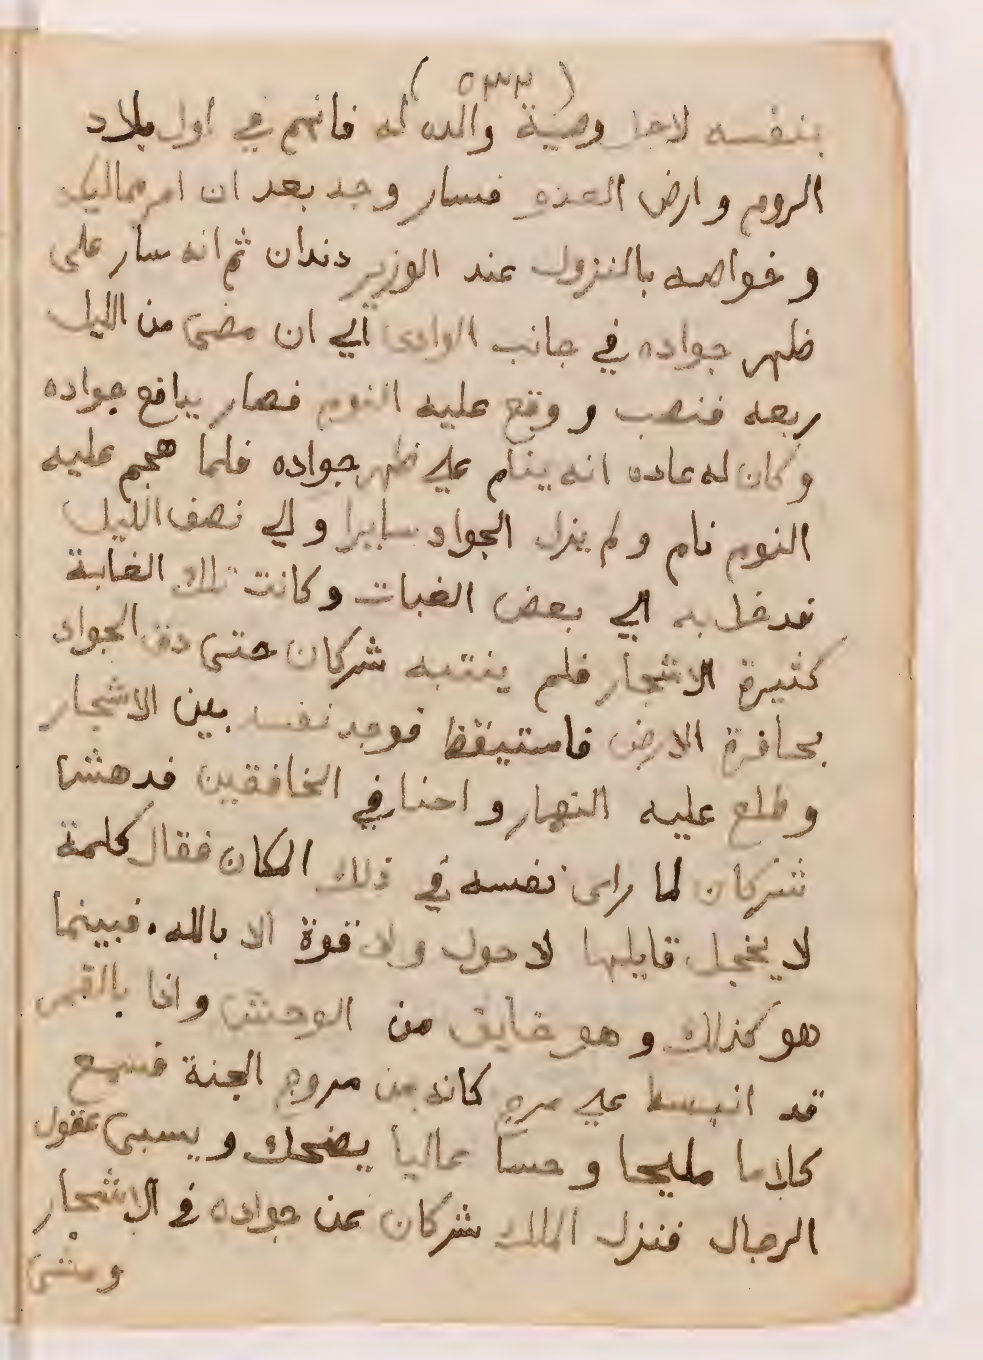 (٥٣٣)
بنفسه لاجل وصية والده له فانهم في اول بلاد
الروم و ارض العدو فسار وجد بعد ان امر مماليك
و خواصه بالنزول عند الوزير دندان ثم انه سار على
ظهر جواده في جانب الوادى الي ان مضى من الليل
ربعه فنصب و وقع عليه النوم فصار يدافع جواده
و كان له عاده انه ينام علي ظهر جواده فلما هجم عليه
النوم نام و لم يزل الجواد سايرا و الي نصف الليل
فدخل به الي بعض الغبات وكانت تلك الغابة
كثيرة الاشجار فلم ينتبه شركان حتى دق الجواد
بحافرة الارض فاستيقظ فوجد نفسه بين الاشجار
و طلع عليه النهار و احنار في الخافقين فدهش
شركان لما راى نفسه في ذلك المكان فقال كلمة
لا يخجل قايلها لا حول ولا قوة الا بالله . فبينما
هو كذلك و هو خايف من الوحش و اذا بالقمر
قد انبسط علي مرج كانه من مروج الجنة فسمع
كلاما مليحا و حسا عاليا يضحك و يسبى عقول
الرجال فنزل الملك شركان عن جواده في الاشجار
ومشى